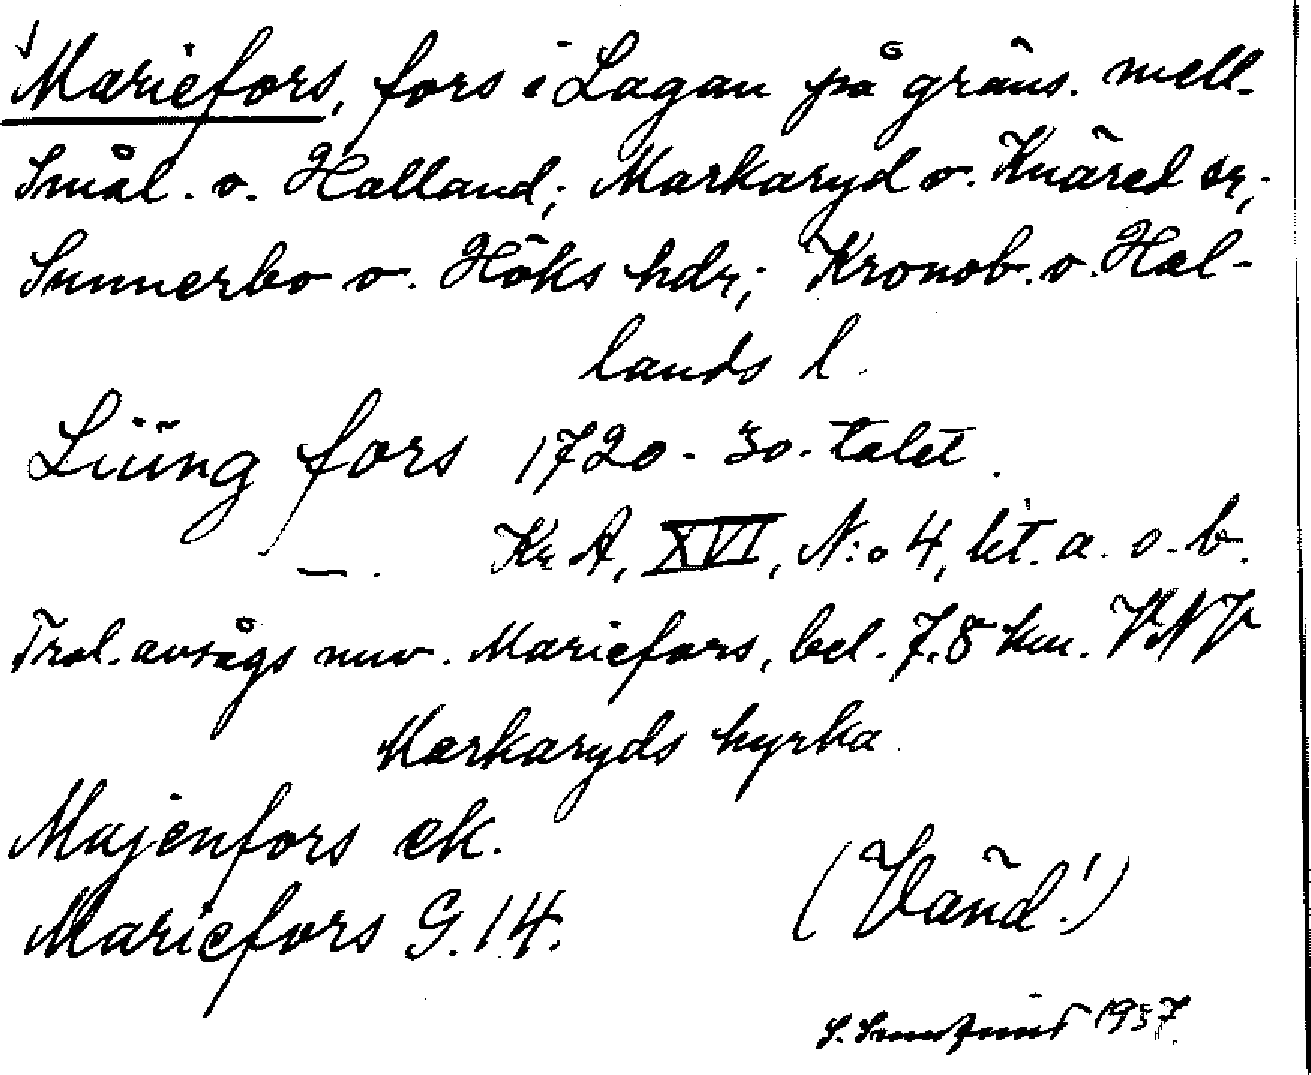 Mariefors, fors i Lagan på gräns. mell.
Smål. o. Halland; Markaryd o. Knäred snr;
Sunnerbo o. Höks hdr; Kronob. o. Hal-
lands l.
Liüng fors 1720-30-talet.
—. Kr A, XVI, N:o 4, lit. a. o. b.
Trol. avsågs nuv. Mariefors, bel. 7.8 km. VNV
Markaryds kyrka.
Majenfors ek.
Mariefors G. 14.
(Vänd!)
S. 1937